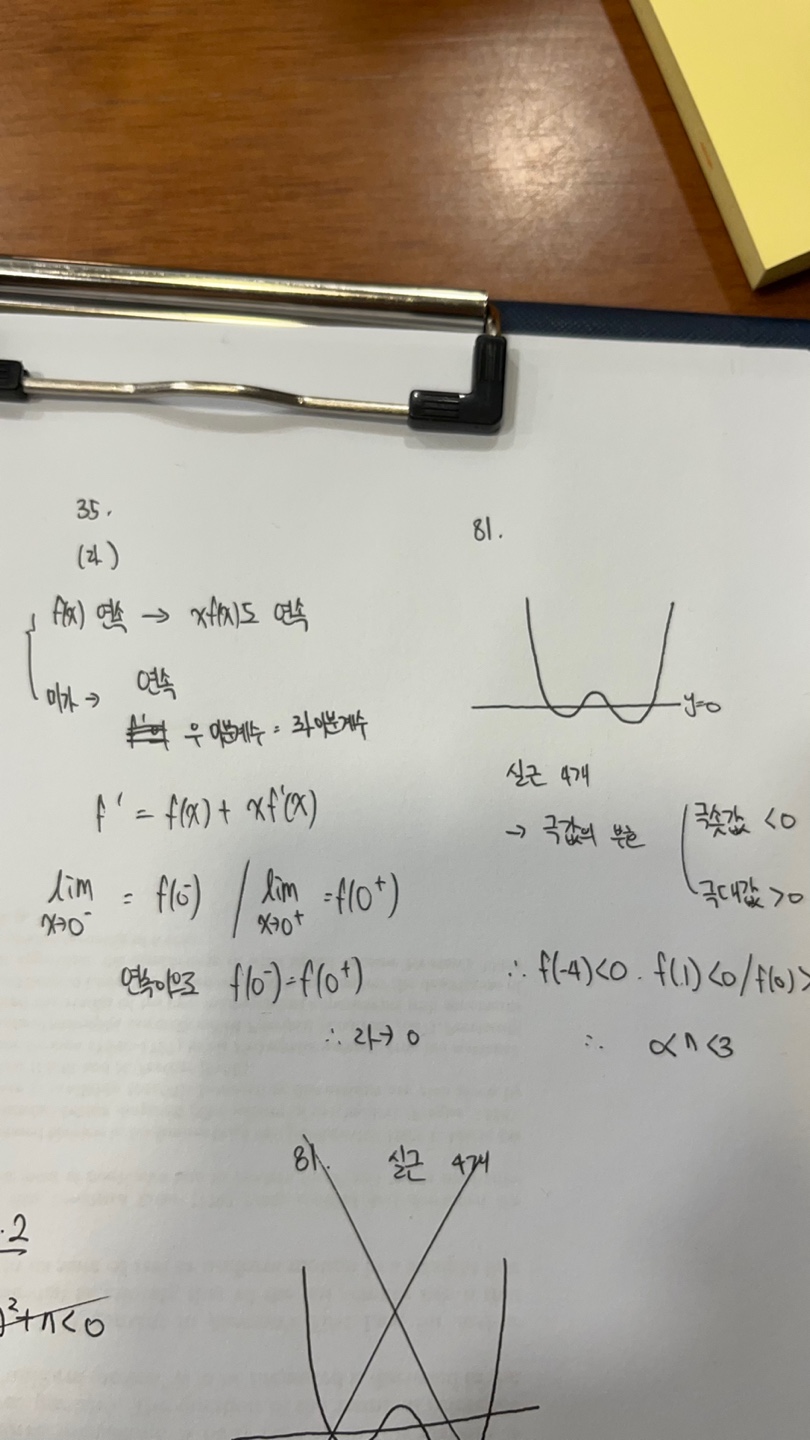 35.
(라)
f(x) 연속 → xf(x)도 연속
미가 → 연속
우미분계수 = 좌미분계수
f' = f(x) + xf'(x)
lim x→0⁻ = f(0⁻) / lim x→0⁺ = f(0⁺)
연속이므로 f(0⁻) = f(0⁺)
∴ 라 → 0
81.
y=0
실근 4개
→ 극값의 부호
극솟값 <0
극대값 >0
∴ f(-4)<0 . f(1)<0 / f(0)>
∴ 0<n<3
81. 실근 4개
.2
)²+n<0